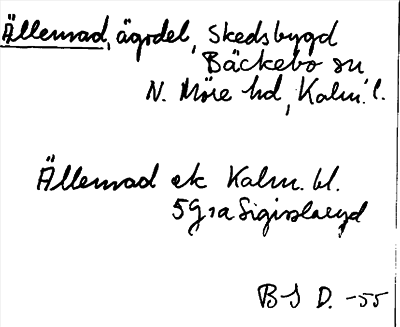 Ällemad, ägodel, Skedsbygd
Bäckebo sn
N. Möre hd, Kalm. l.
Ällemad ek Kalm. bl.
5G 1a Sigislaryd
BS D. -55